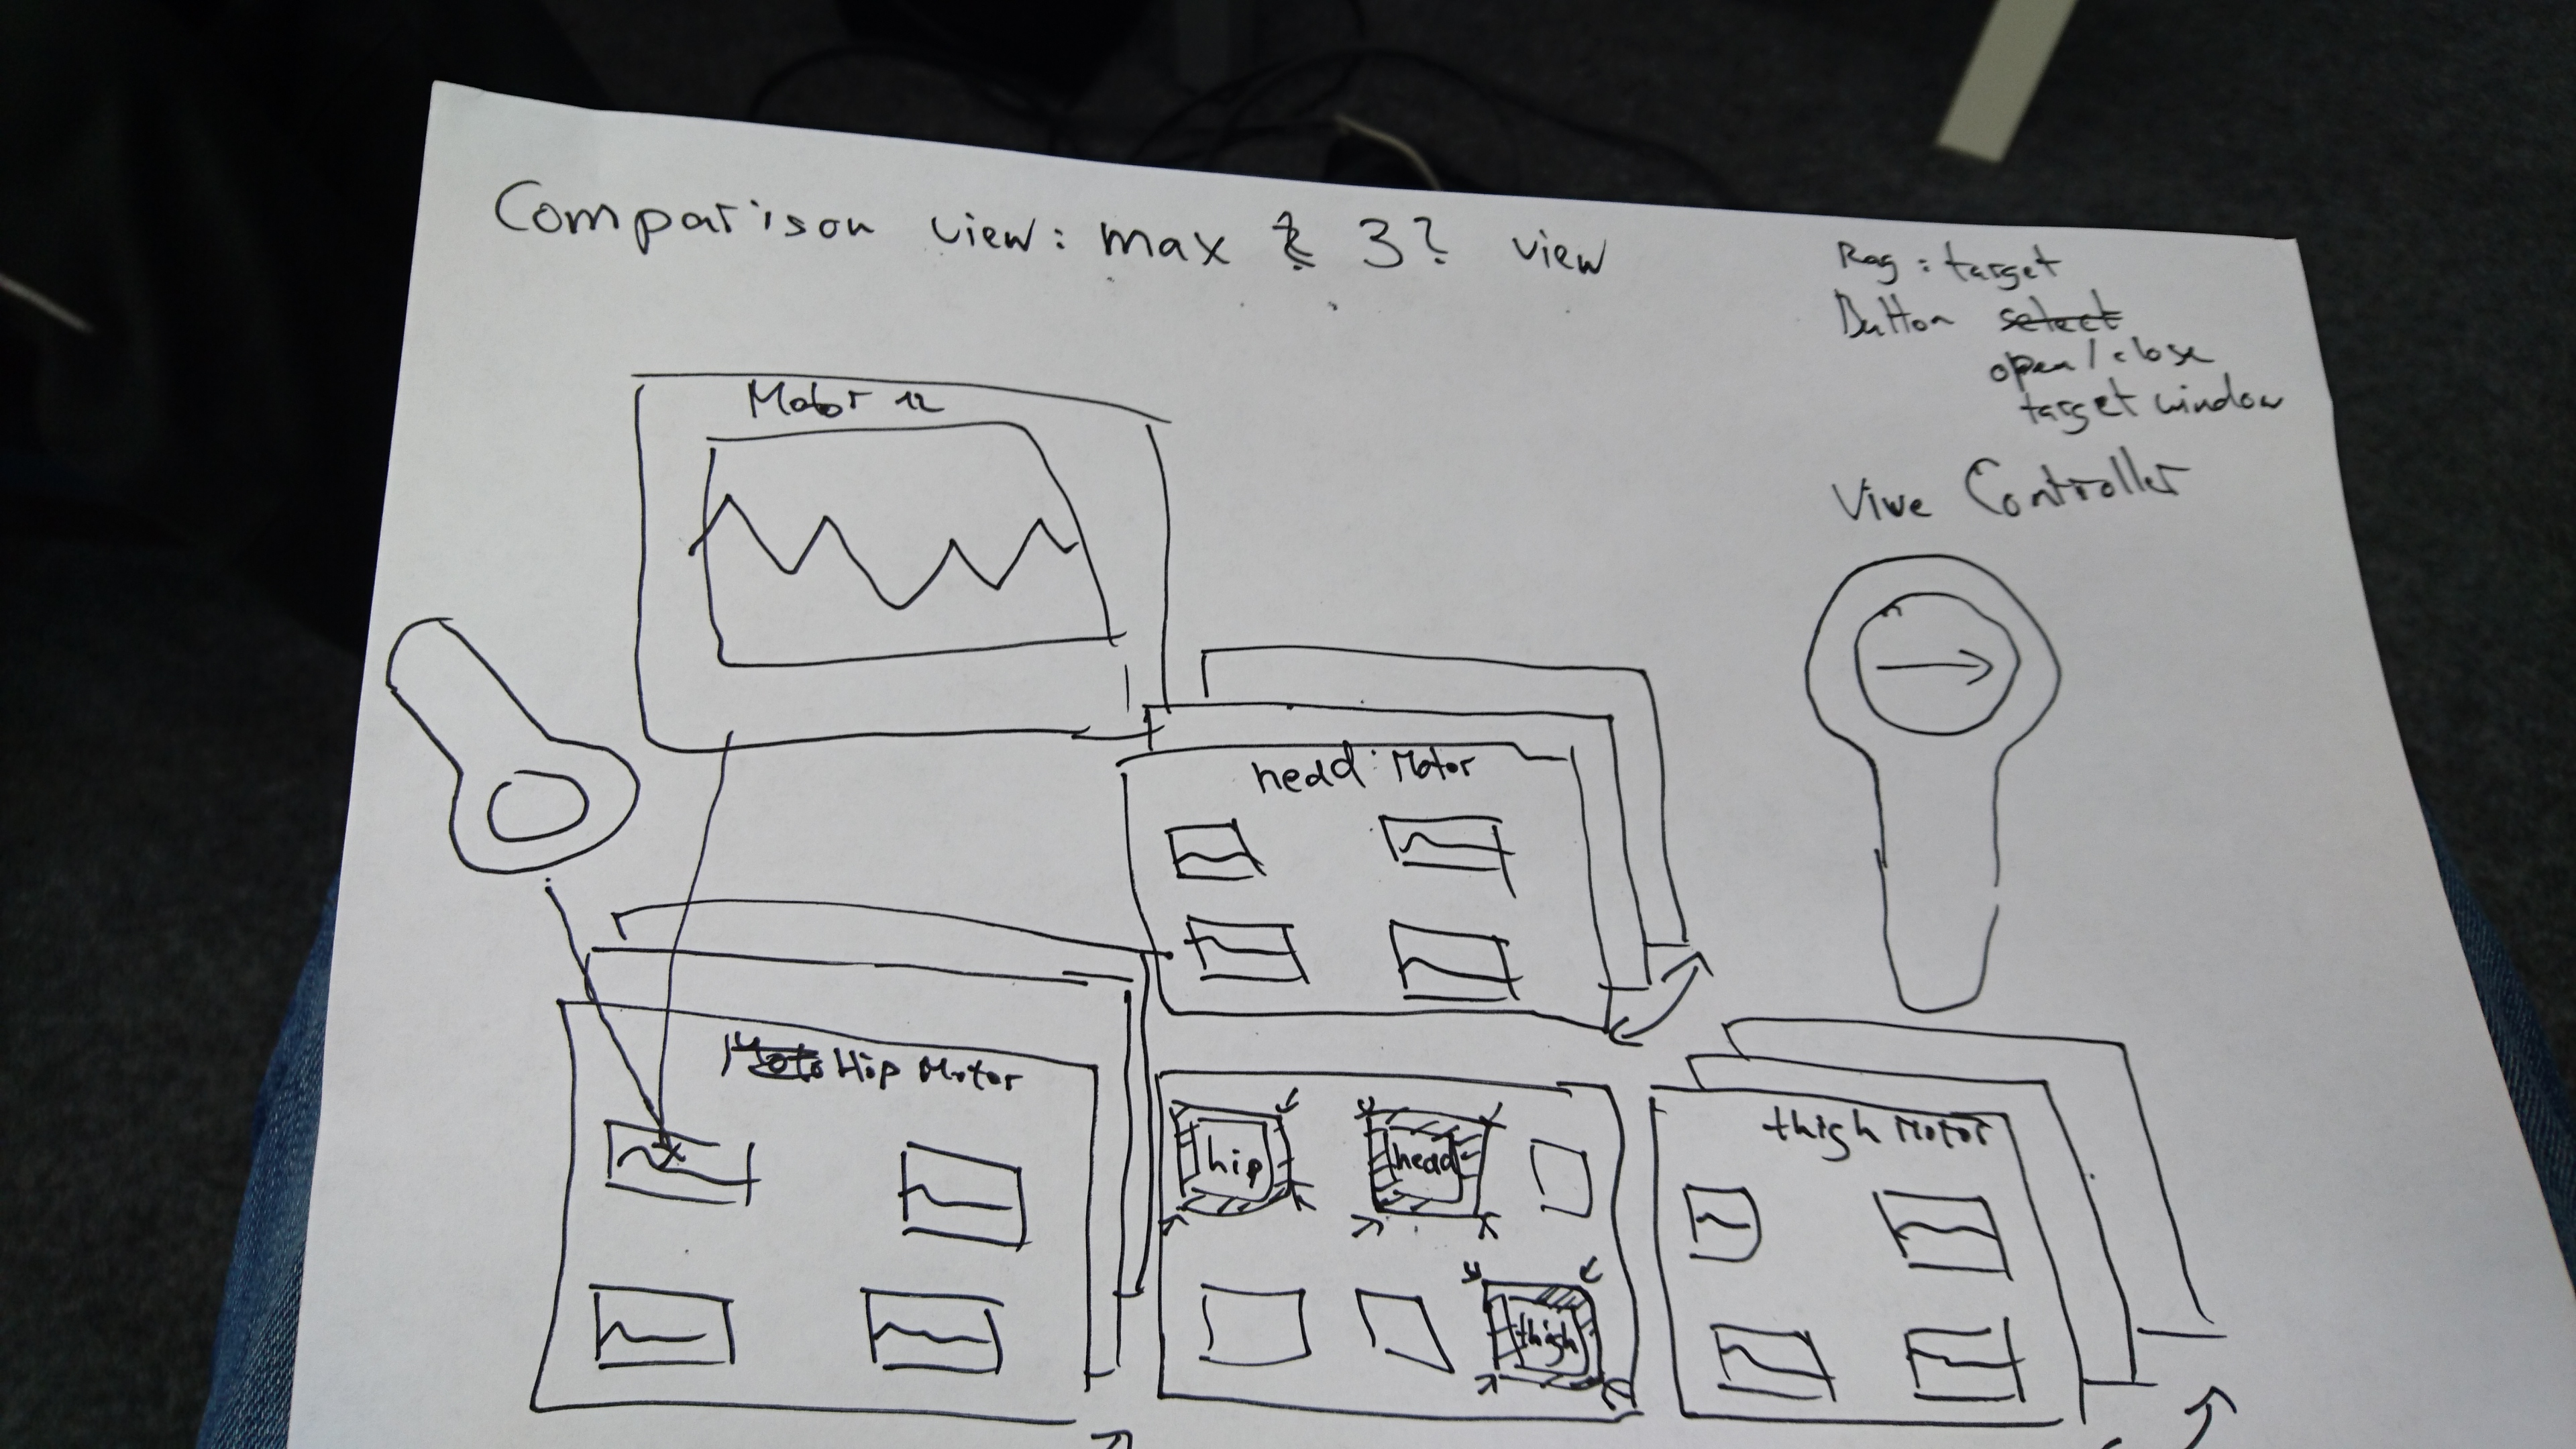 Comparison view: max 3? view
Ray: target
Button select
open/close
target window
Vive Controller
Motor 12
head: Motor
Moto Hip Motor
hip
head
thigh
thigh Motor